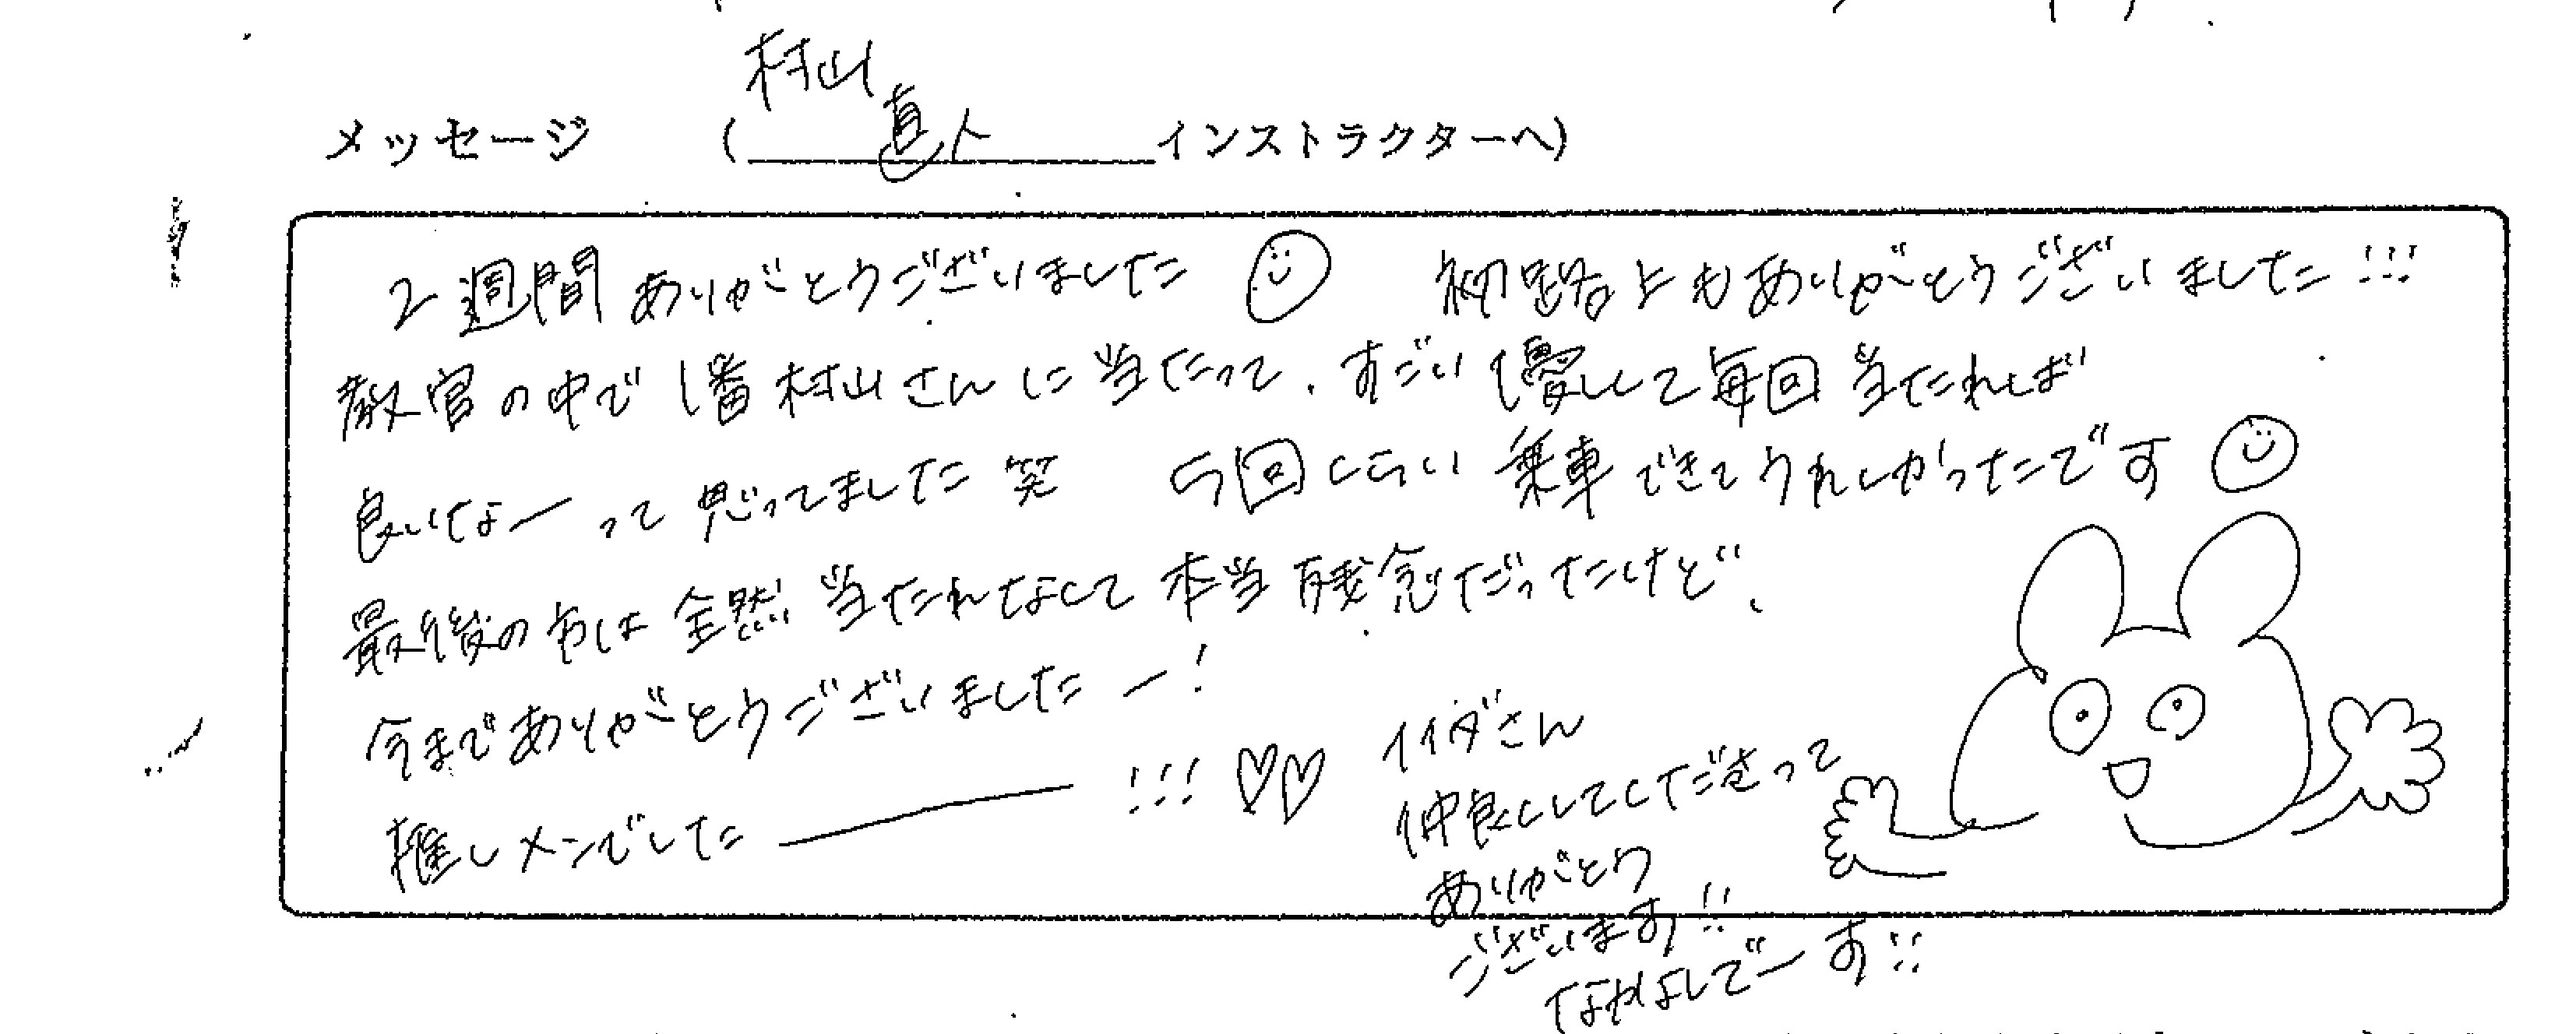 村山
メッセージ (直人インストラクターへ)
2週間ありがとうございました 初路上もありがとうございました!!!
教官の中で1番村山さんに当たって、すごい優しくて毎回当たれば
良いなーって思ってました笑 5回くらい乗車できてうれしかったです
最後の方は全然当たれなくて本当残念だったけど、
今までありがとうございましたー!
推しメンでしたー!!!♡♡
イイダさん
仲良くしてくださって
ありがとう
ございます!!
なかよしでーす!!